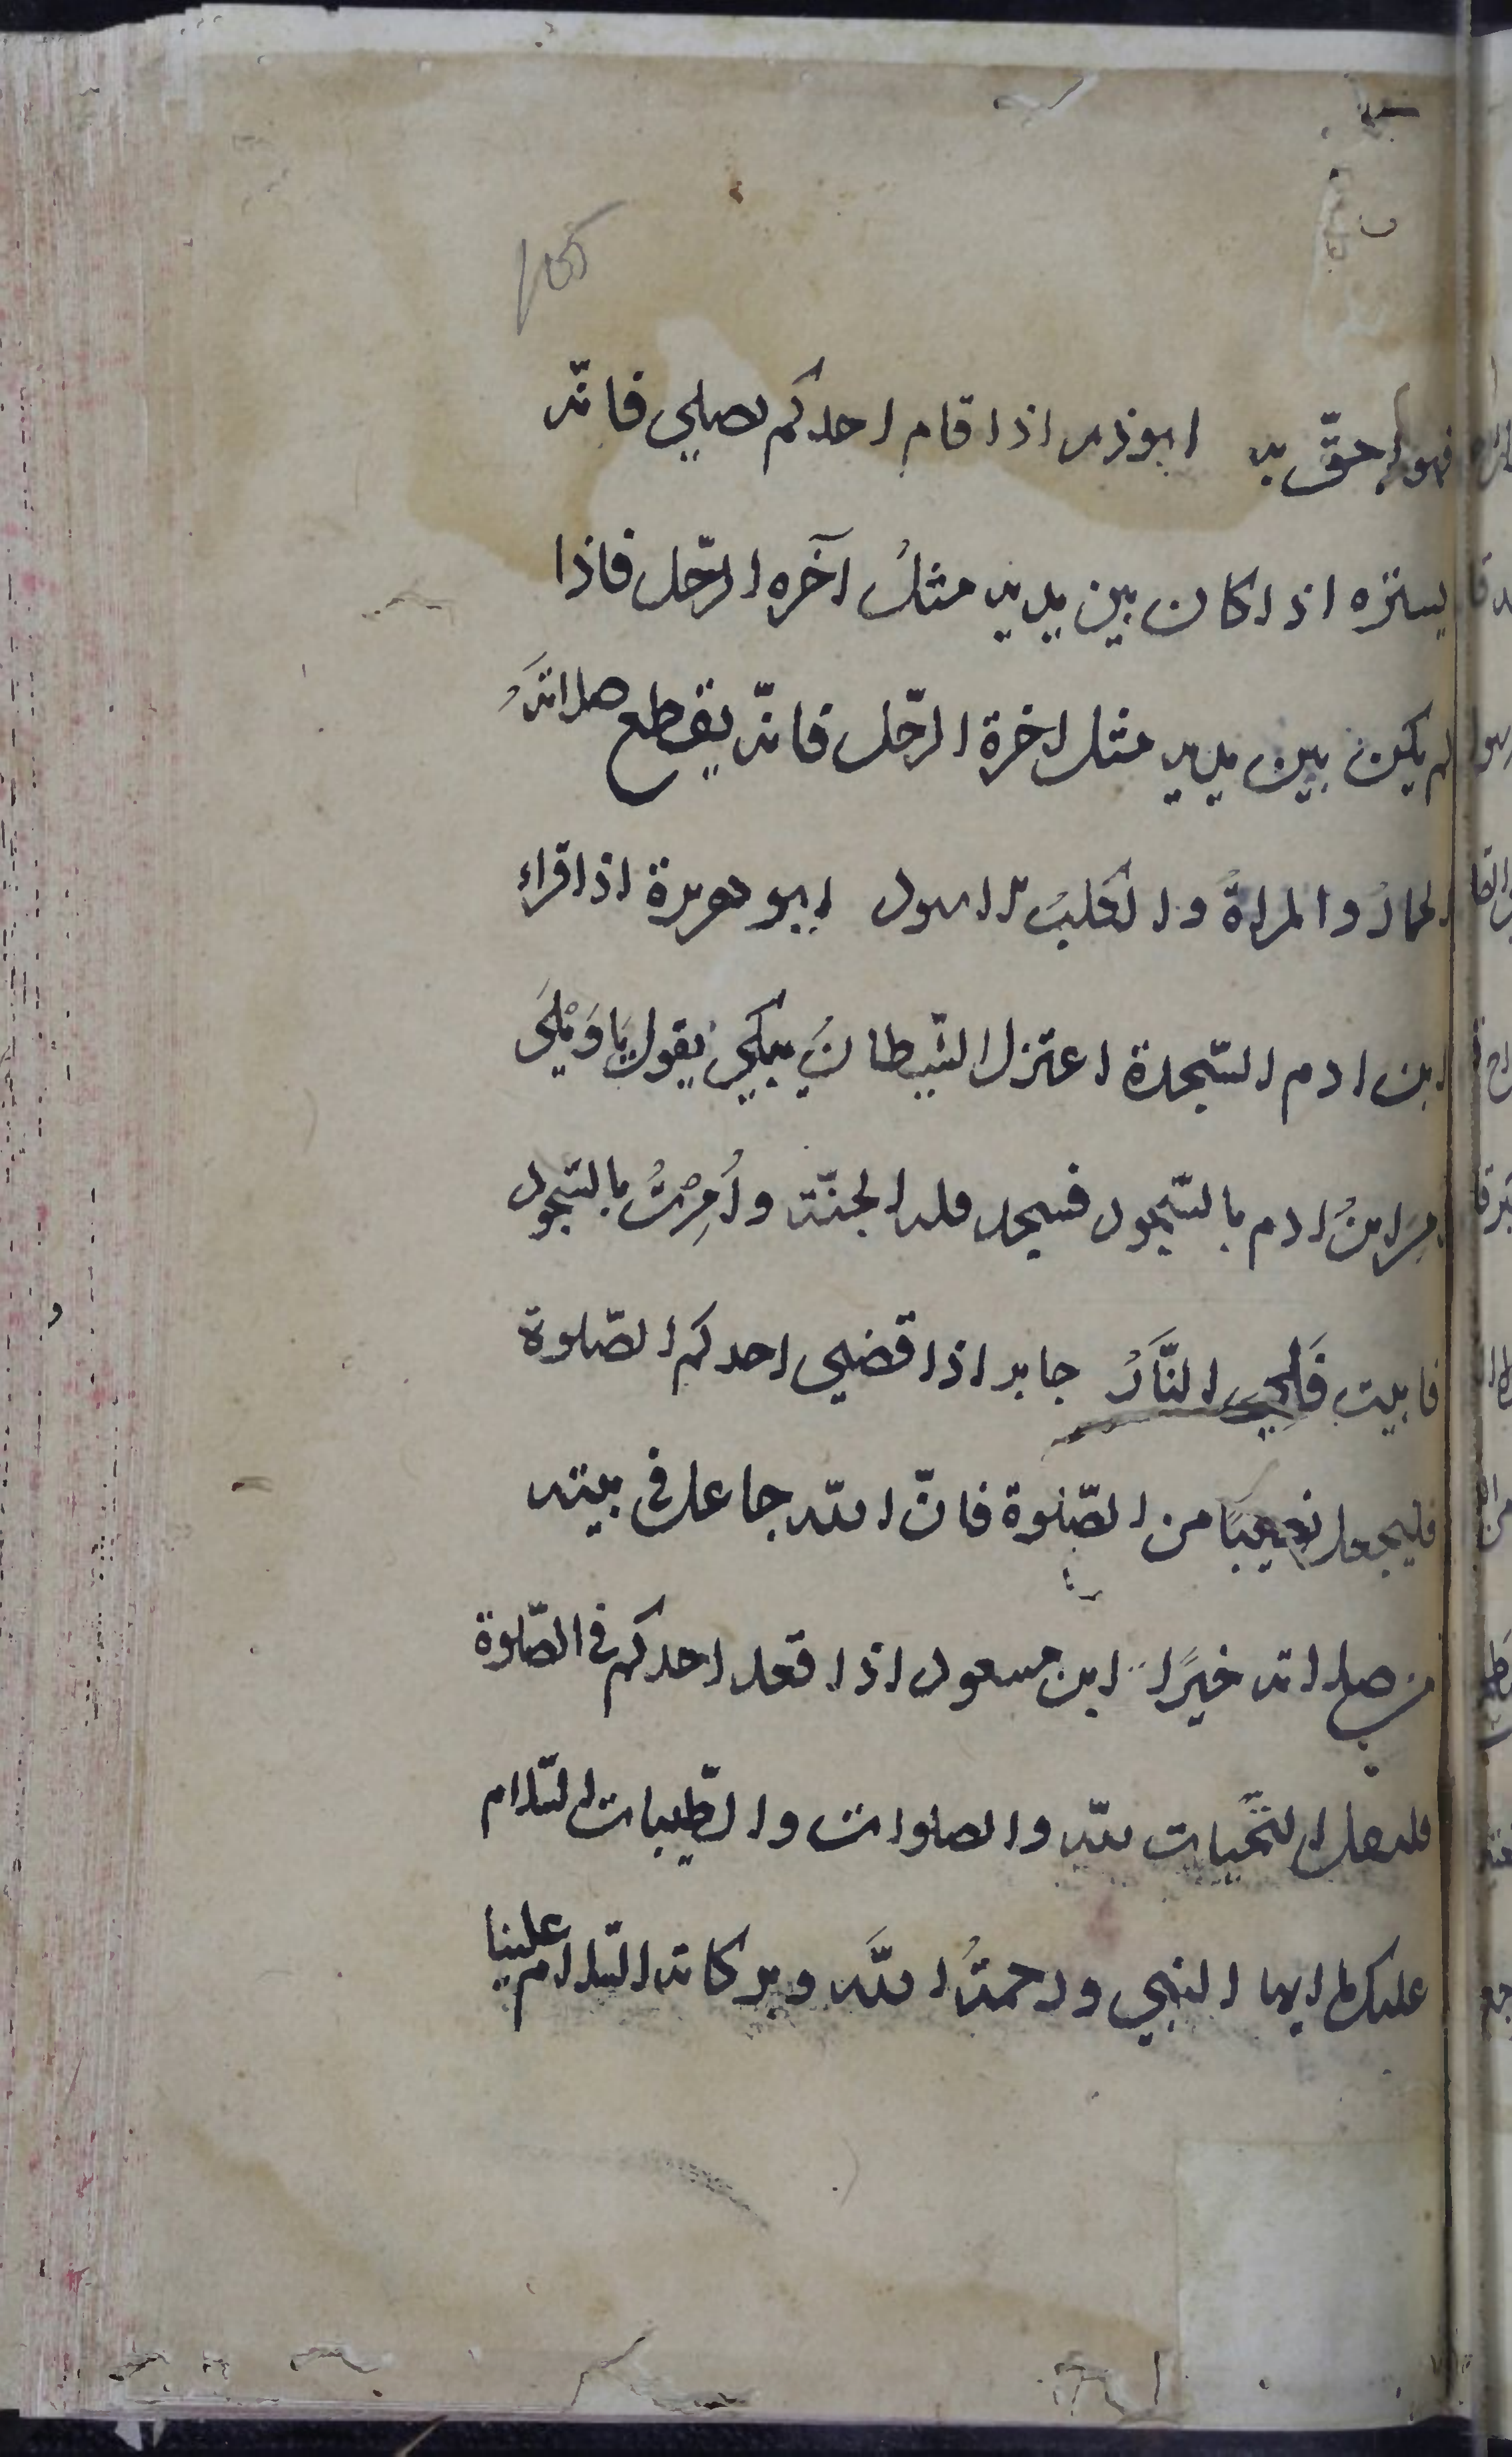 105
فهو احقّ به ابوذر اذا قام احدكم يصلي فانّه
يستره اذا كان بين يديه مثلُ آخره الرّحل فاذا
لم يكن بين يديه مثل اخرة الرّحل فانّه يقطع صلاتَهُ
الحمارُ والمراةُ والكلبُ الاسود ابو هريرة اذا قراء
ابن ادم السّجدة اعتزل الشّيطانُ يبكي يقول يَا وَيْلَى
اُمِرَ ابنُ ادم بالسّجود فسجد فله الجنّة واُمِرْتُ بالسّجود
فابيت فَلِيَ النَّارُ جابر اذا قضى احدكم الصّلوة
فليجعل نصيبًا من الصّلوة فانّ الله جاعل في بيته
من صلاته خيرًا ابن مسعود اذا قعد احدكم في الصّلوة
فليقل التحّيات للّه والصلوات والطّيبات السّلام
عليك ايها النبي ورحمةُ اللَّه وبركاته السّلام علينا